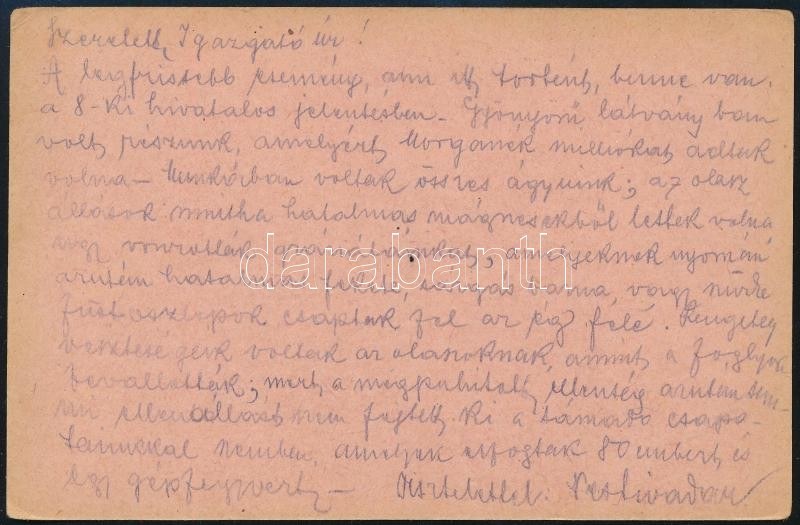 Szeretett Igazgató Úr!
A legfrissebb esemény, ami itt történt, benne van
a 8-ki hivatalos jelentésben. Gyönyörű látványban
volt részünk, amelyért Morganék milliókat adtak
volna – Munkában voltak összes ágyúink; az olasz
állások mintha hatalmas mágnesekből lettek volna
úgy vonzották gránátainkat, amelyeknek nyomán
azután hatalmas fekete, sárgás barna, vagy szürke
füstoszlopok csaptak fel az ég felé. Rengeteg
veszteségeik voltak az olaszoknak, amint a foglyok
bevallották; mert a megpuhított ellenség azután sem-
mi ellenállást nem fejtett ki a támadó csapa-
tainkkal szemben, amelyek elfogtak 80 embert és
egy gépfegyvert – Tisztelettel:
darabanth